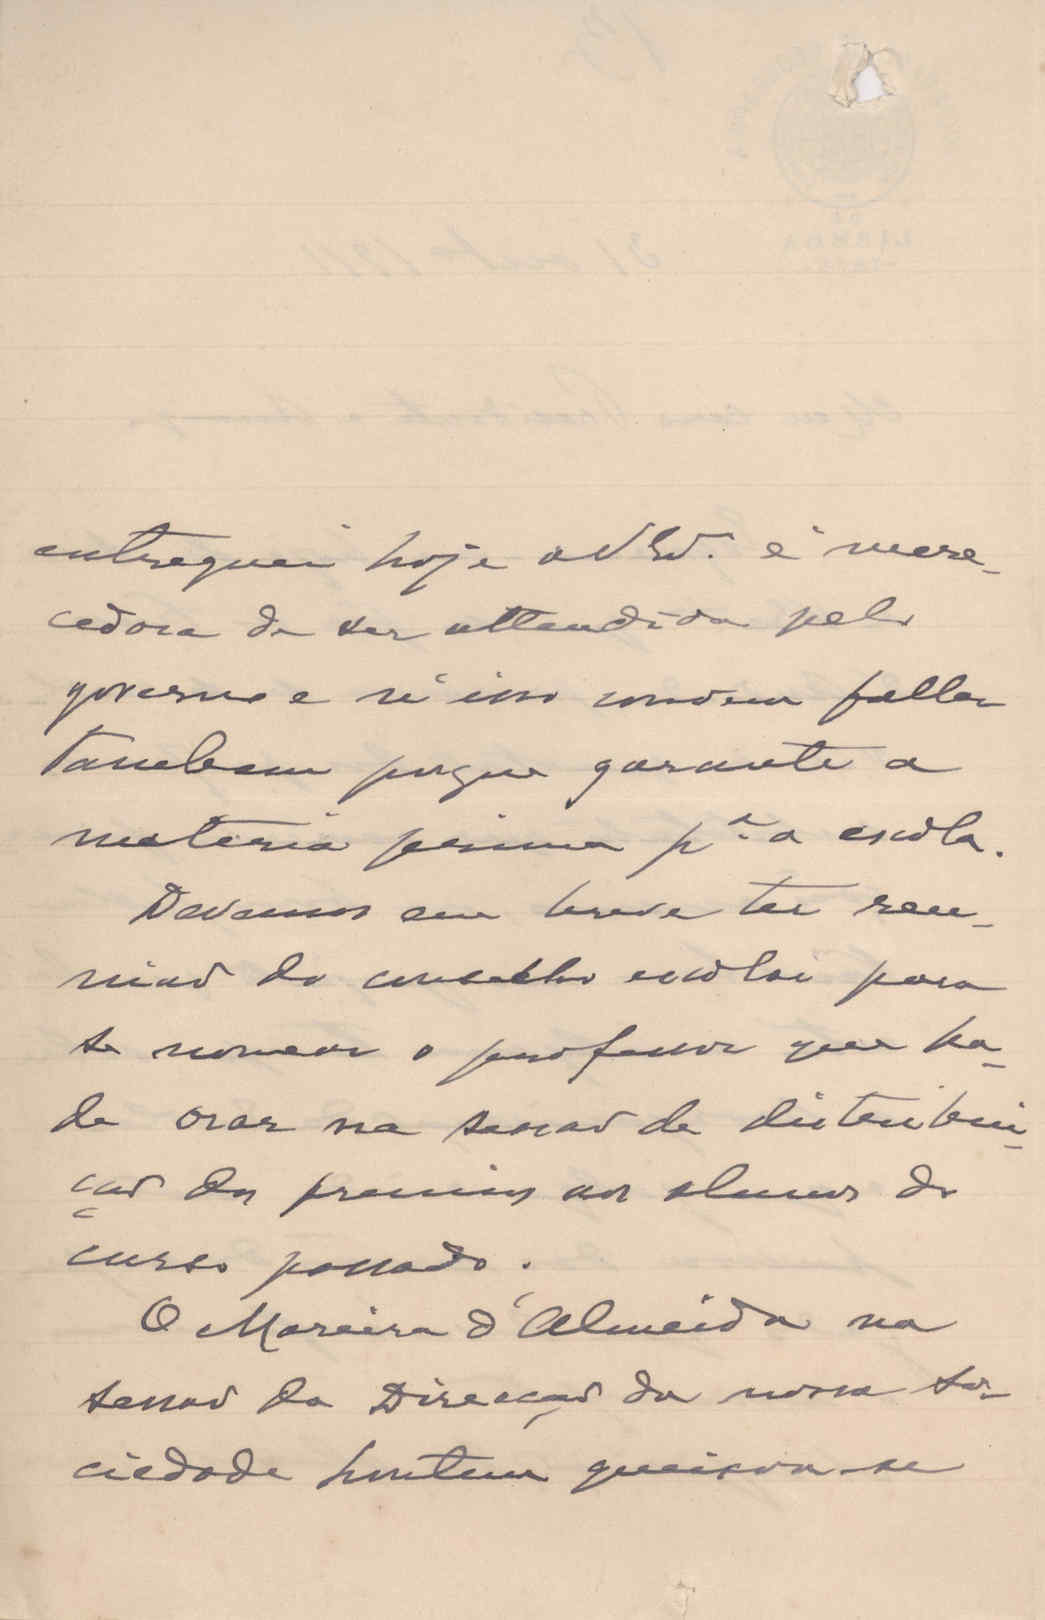 entreguei hoje a V Ex.ª é mere-
cedora de ser attendida pelo
governo e n'isso convem fallar
tambem porque garante a
materia prima p.ª a escola.
Devemos em breve ter reu-
nião do conselho escolar para
se nomear o professor que ha-
de orar na sessão de distribui-
ção dos premios aos alumnos do
curso passado.
O Moreira d'Almeida na
sessão da Direcção da nossa So-
ciedade hontem queixou-se